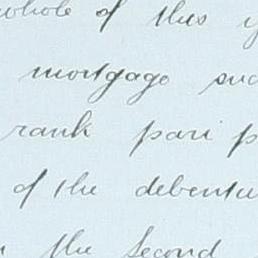 whole of this
mortgage suc
rank pari p
of the debentu
the Second